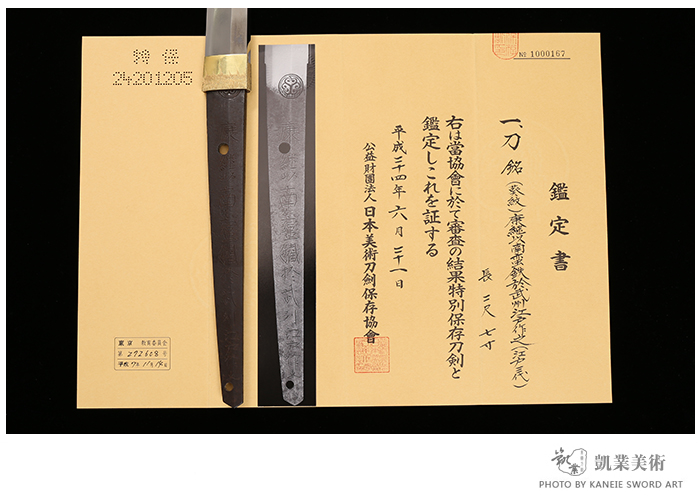 特保
24201205
№ 1000167
鑑定書
一、刀 銘(葵紋)康継以南蛮鉄於武州江戸作之(江戸三代)
長 二尺 七寸
右は當協會に於て審査の結果特別保存刀剣と
鑑定しこれを証する
平成二十四年六月二十一日
公益財團法人 日本美術刀剣保存協會
東京 教育委員会
第 272608 号
凱業美術
PHOTO BY KANEIE SWORD ART